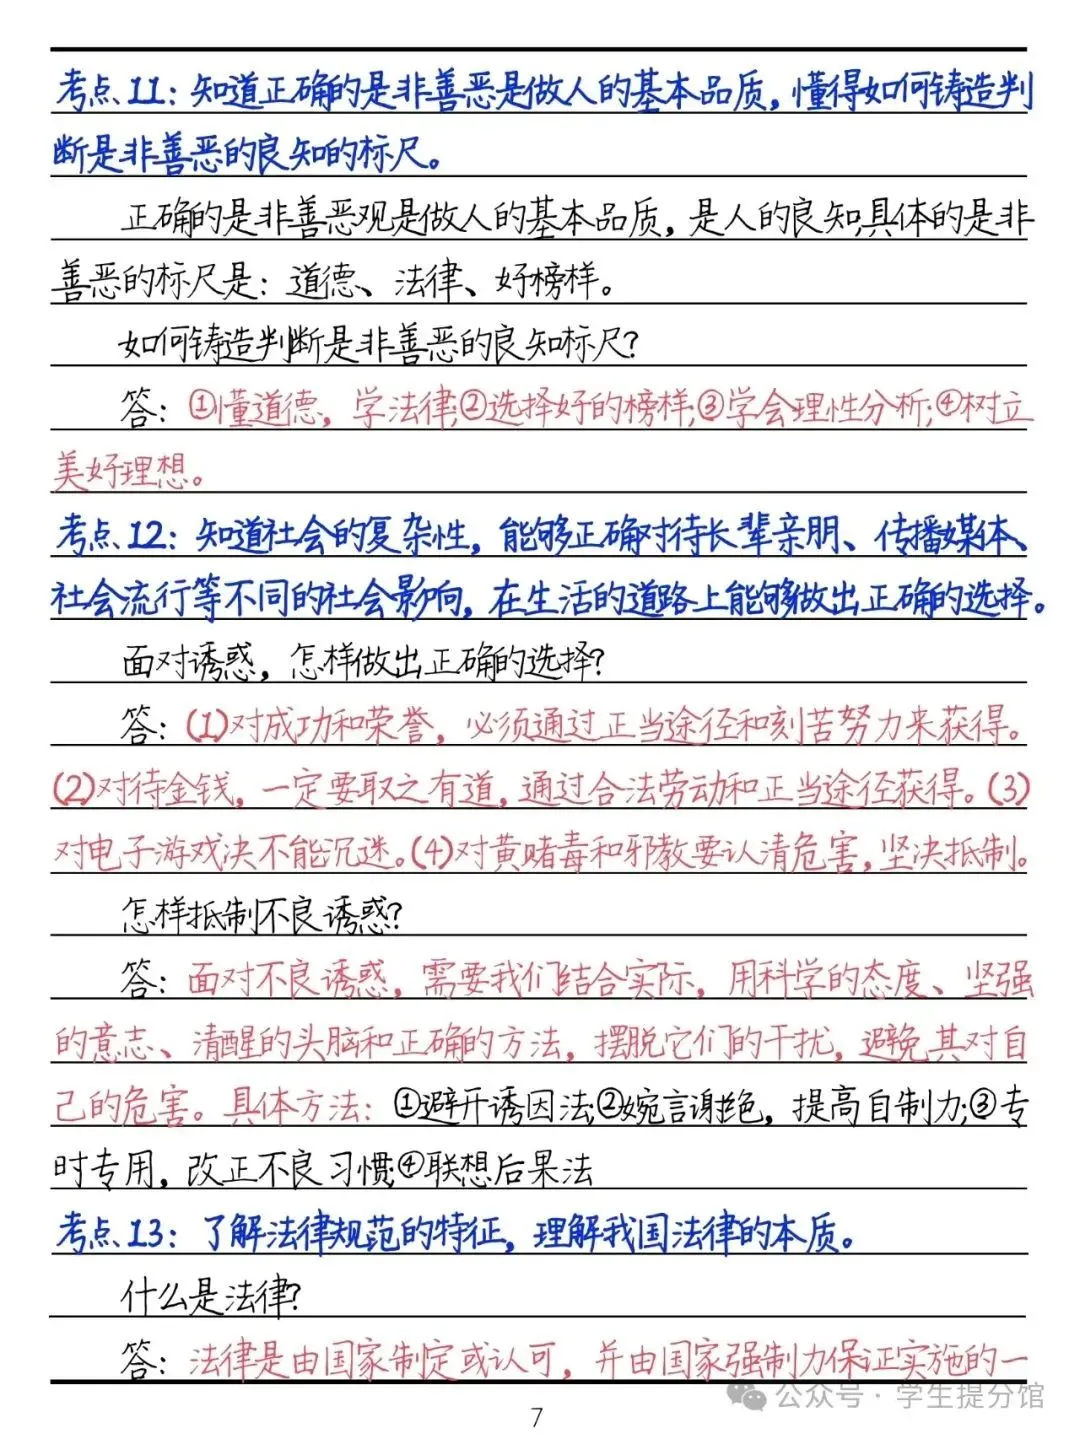 考点11：知道正确的是非善恶是做人的基本品质，懂得如何铸造判
断是非善恶的良知的标尺。
正确的是非善恶观是做人的基本品质，是人的良知,具体的是非
善恶的标尺是：道德、法律、好榜样。
如何铸造判断是非善恶的良知标尺?
答：①懂道德，学法律;②选择好的榜样;③学会理性分析;④树立
美好理想。
考点12：知道社会的复杂性，能够正确对待长辈亲朋、传播媒体、
社会流行等不同的社会影响，在生活的道路上能够做出正确的选择。
面对诱惑，怎样做出正确的选择?
答：(1)对成功和荣誉，必须通过正当途径和刻苦努力来获得。
(2)对待金钱，一定要取之有道，通过合法劳动和正当途径获得。(3)
对电子游戏决不能沉迷。(4)对黄赌毒和邪教要认清危害，坚决抵制。
怎样抵制不良诱惑?
答：面对不良诱惑，需要我们结合实际，用科学的态度、坚强
的意志、清醒的头脑和正确的方法，摆脱它们的干扰，避免其对自
己的危害。具体方法：①避开诱因法;②婉言谢绝，提高自制力;③专
时专用，改正不良习惯;④联想后果法
考点13：了解法律规范的特征，理解我国法律的本质。
什么是法律?
答：法律是由国家制定或认可，并由国家强制力保证实施的一
公众号·学生提分馆
7